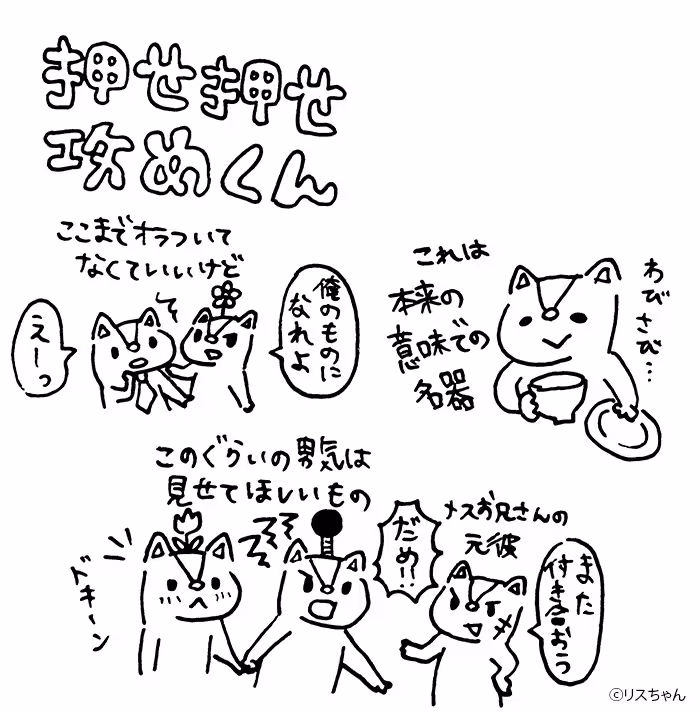 押せ押せ
攻めくん
ここまでオラついて
なくていいけど
えーっ
俺のものに
なれよ
これは
本来の
意味での
名器
わびさび…
このぐらいの男気は
見せてほしいもの
ドキーン
だめ!!
メスお兄さんの
元彼
また
付き合おう
©リスちゃん